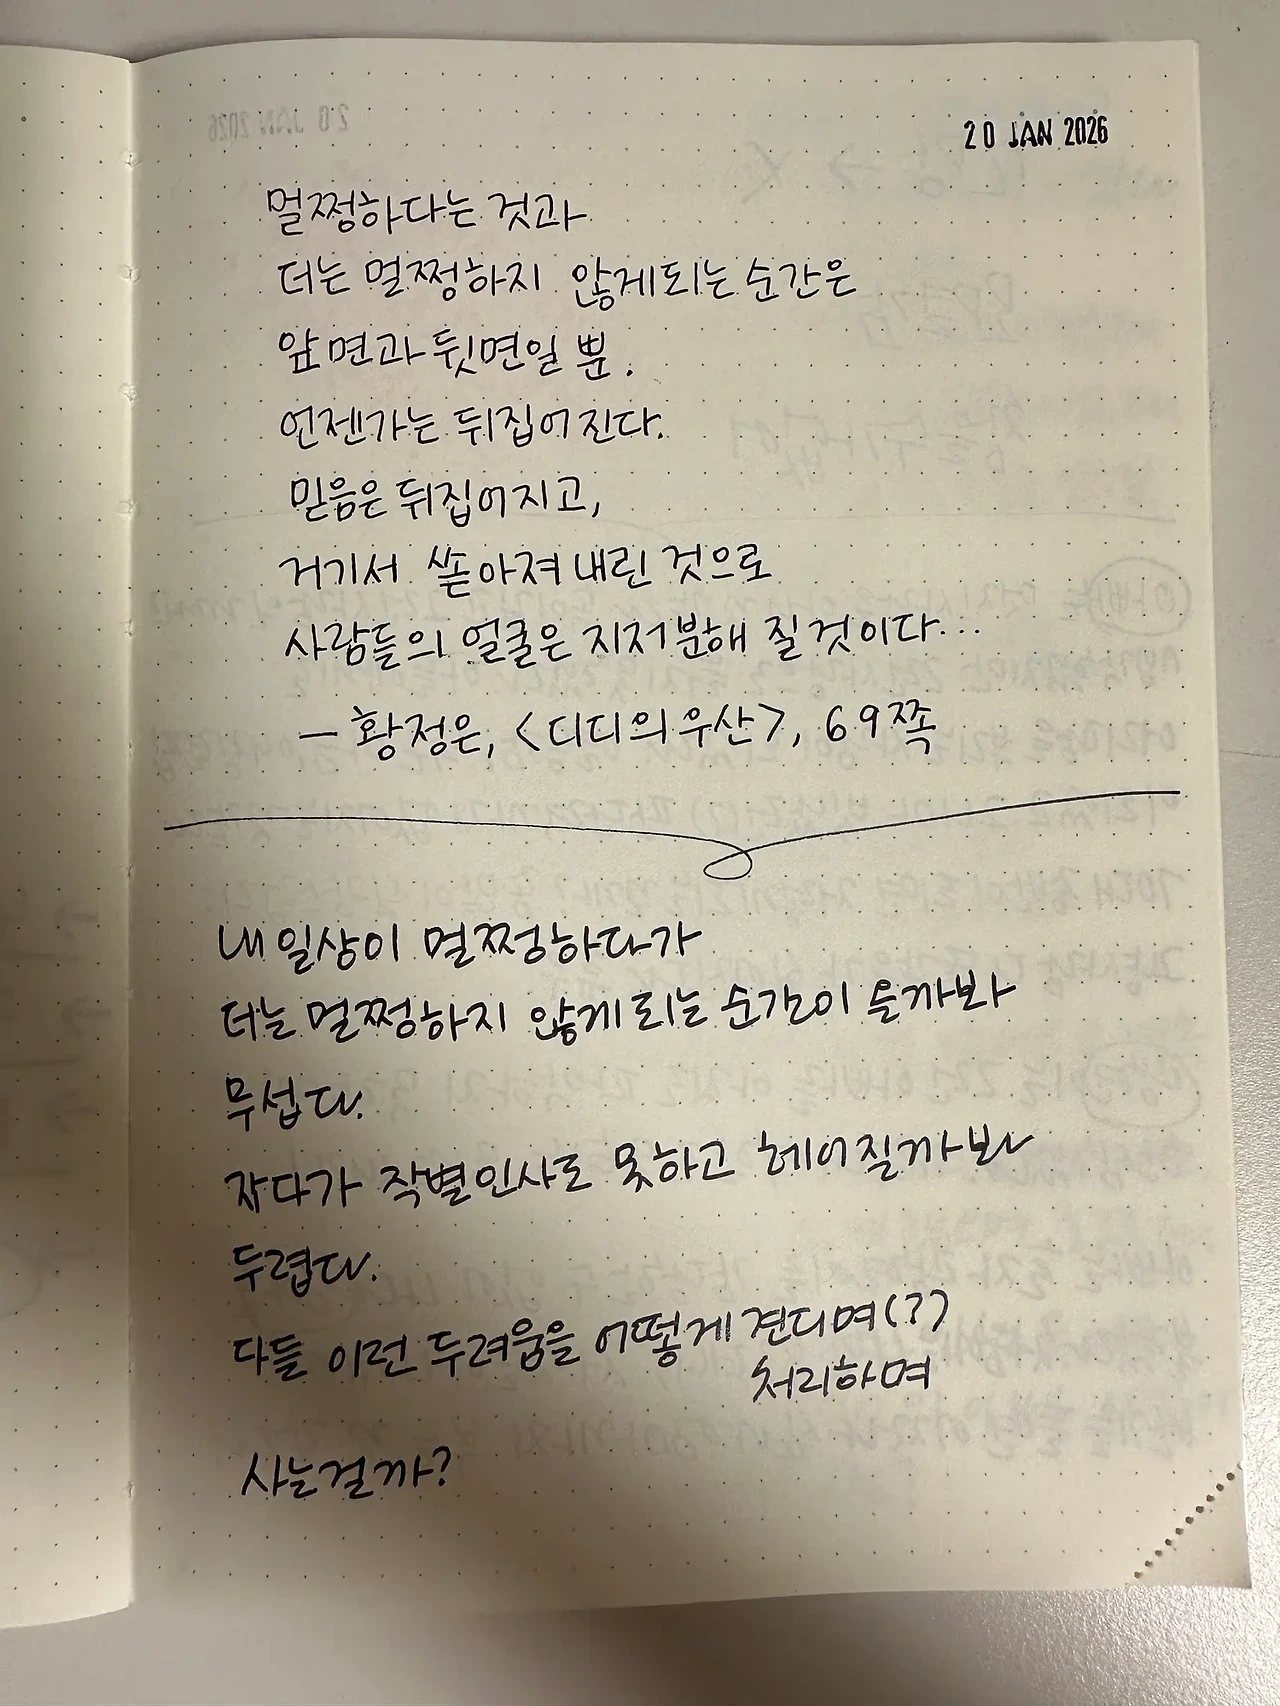 20 JAN 2026
멀쩡하다는 것과
더는 멀쩡하지 않게되는 순간은
앞면과 뒷면일 뿐.
언젠가는 뒤집어진다.
믿음은 뒤집어지고,
거기서 쏟아져 내린 것으로
사람들의 얼굴은 지저분해 질 것이다...
– 황정은, <디디의 우산>, 69쪽
내 일상이 멀쩡하다가
더는 멀쩡하지 않게 되는 순간이 올까봐
무섭다.
자다가 작별인사도 못하고 헤어질까봐
두렵다.
다들 이런 두려움을 어떻게 견디며(?)
처리하며
사는걸까?